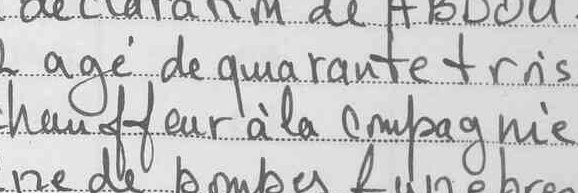 declaration de ABDOU
agé de quarante trois
chauffeur à la compagnie
ne de pompes funebre